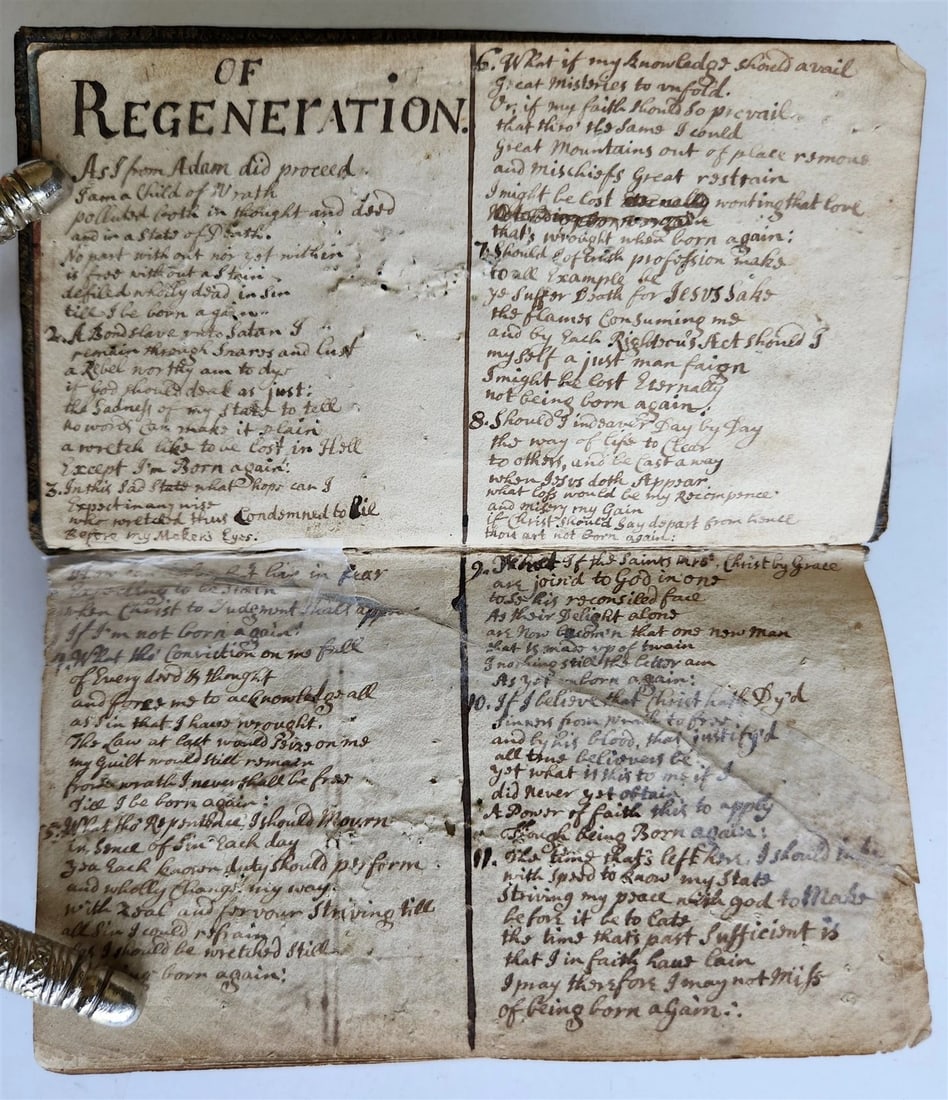 OF
REGENERATION.
As I from Adam did proceed
I am a Child of Wrath
polluted both in thought and deed
and in a State of Death.
No part with out nor yet within
is free without a Stain
defiled wholly dead in Sin
till I be born again
2. A Bondslave unto Satan I
remain through Snares and Lust
a Rebel worthy am to dye
if God should deal as just:
the Sadness of my State to tell
no words can make it plain
a wretch like to be lost in Hell
Except I'm Born again:
3. In this Sad State what hope can I
Expect in any wise
who wretched thus Condemned to
Before my Makers Eyes.
live in fear
when Christ to Judgment shall
If I'm not born again:
4. What tho' Conviction on me fall
of Every deed & thought
and force me to acknowledge all
as Sin that I have wrought.
The Law at last would Seize on me
my Guilt would still remain
from wrath I never shall be free
Till I be born again:
5. What tho' Repentance I should Mourn
in Sence of Sin Each day
yea Each known duty should perform
and wholly Change my way.
with Zeal and fervour Striving till
all Sin I could refrain
I should be wretched Still
born again:
6. What if my knowledge should avail
Great Misteries to unfold.
Or if my faith should So prevail
that thro' the Same I could
Great Mountains out of place remove
and Mischiefs Great restrain
I might be lost wonting that love
that's wrought when born again:
7. Should I of profession make
to all Example be
ye Suffer Death for Jesus Sake
the flames Consuming me
and by Each Righteous Act should I
my Self a just man faign
I might be lost Eternally
not being born again:
8. Should I indeaver Day by Day
the way of life to Clear
to others, and be Cast away
when Jesus doth Appear
what loss would be my Recompence
and misery my Gain
if Christ should Say depart from hence
thou art not born again:
9. If the Saints thro' Christ by Grace
are join'd to God in one
to See his reconsiled face
As their Delight alone
are Now becom'n that one new man
that is made up of twain
I nothing still the better am
As yet unborn again:
10. If I believe that Christ hath Dy'd
Sinners from wrath to free
and by his blood, that justify'd
all true believers be
yet what is this to me if I
did never yet obtain
A Power of faith this to apply
Through being Born again:
11. The time that's left here I should
with Speed to know my State
Striving my peace with God to Make
before it be to late
the time that's past Sufficient is
that I in faith have lain
I pray therefore I may not Miss
of being born again: